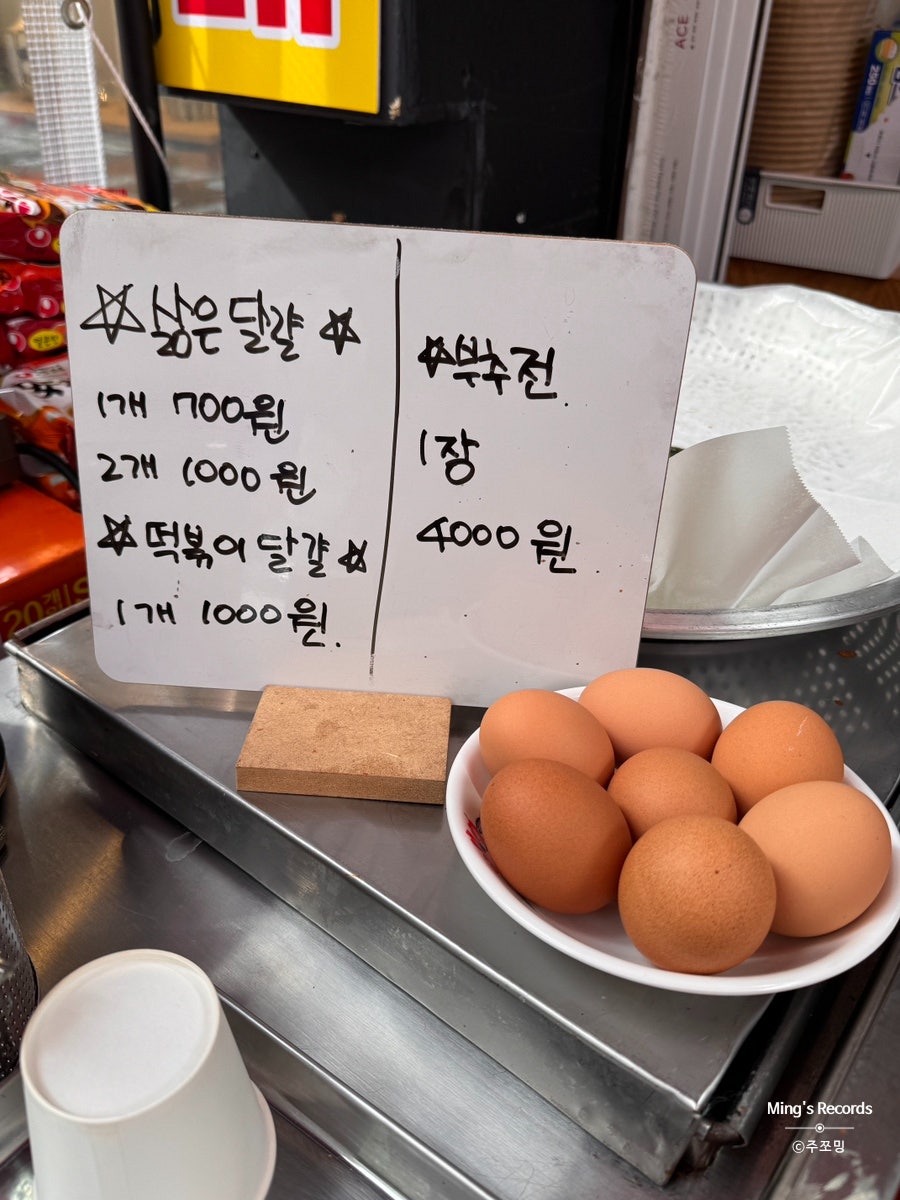 ☆삶은달걀☆
1개 700원
2개 1000원
☆떡볶이달걀☆
1개 1000원.
☆부추전.
1장
4000원.
ACE
20개
Ming's Records
©주쪼밍